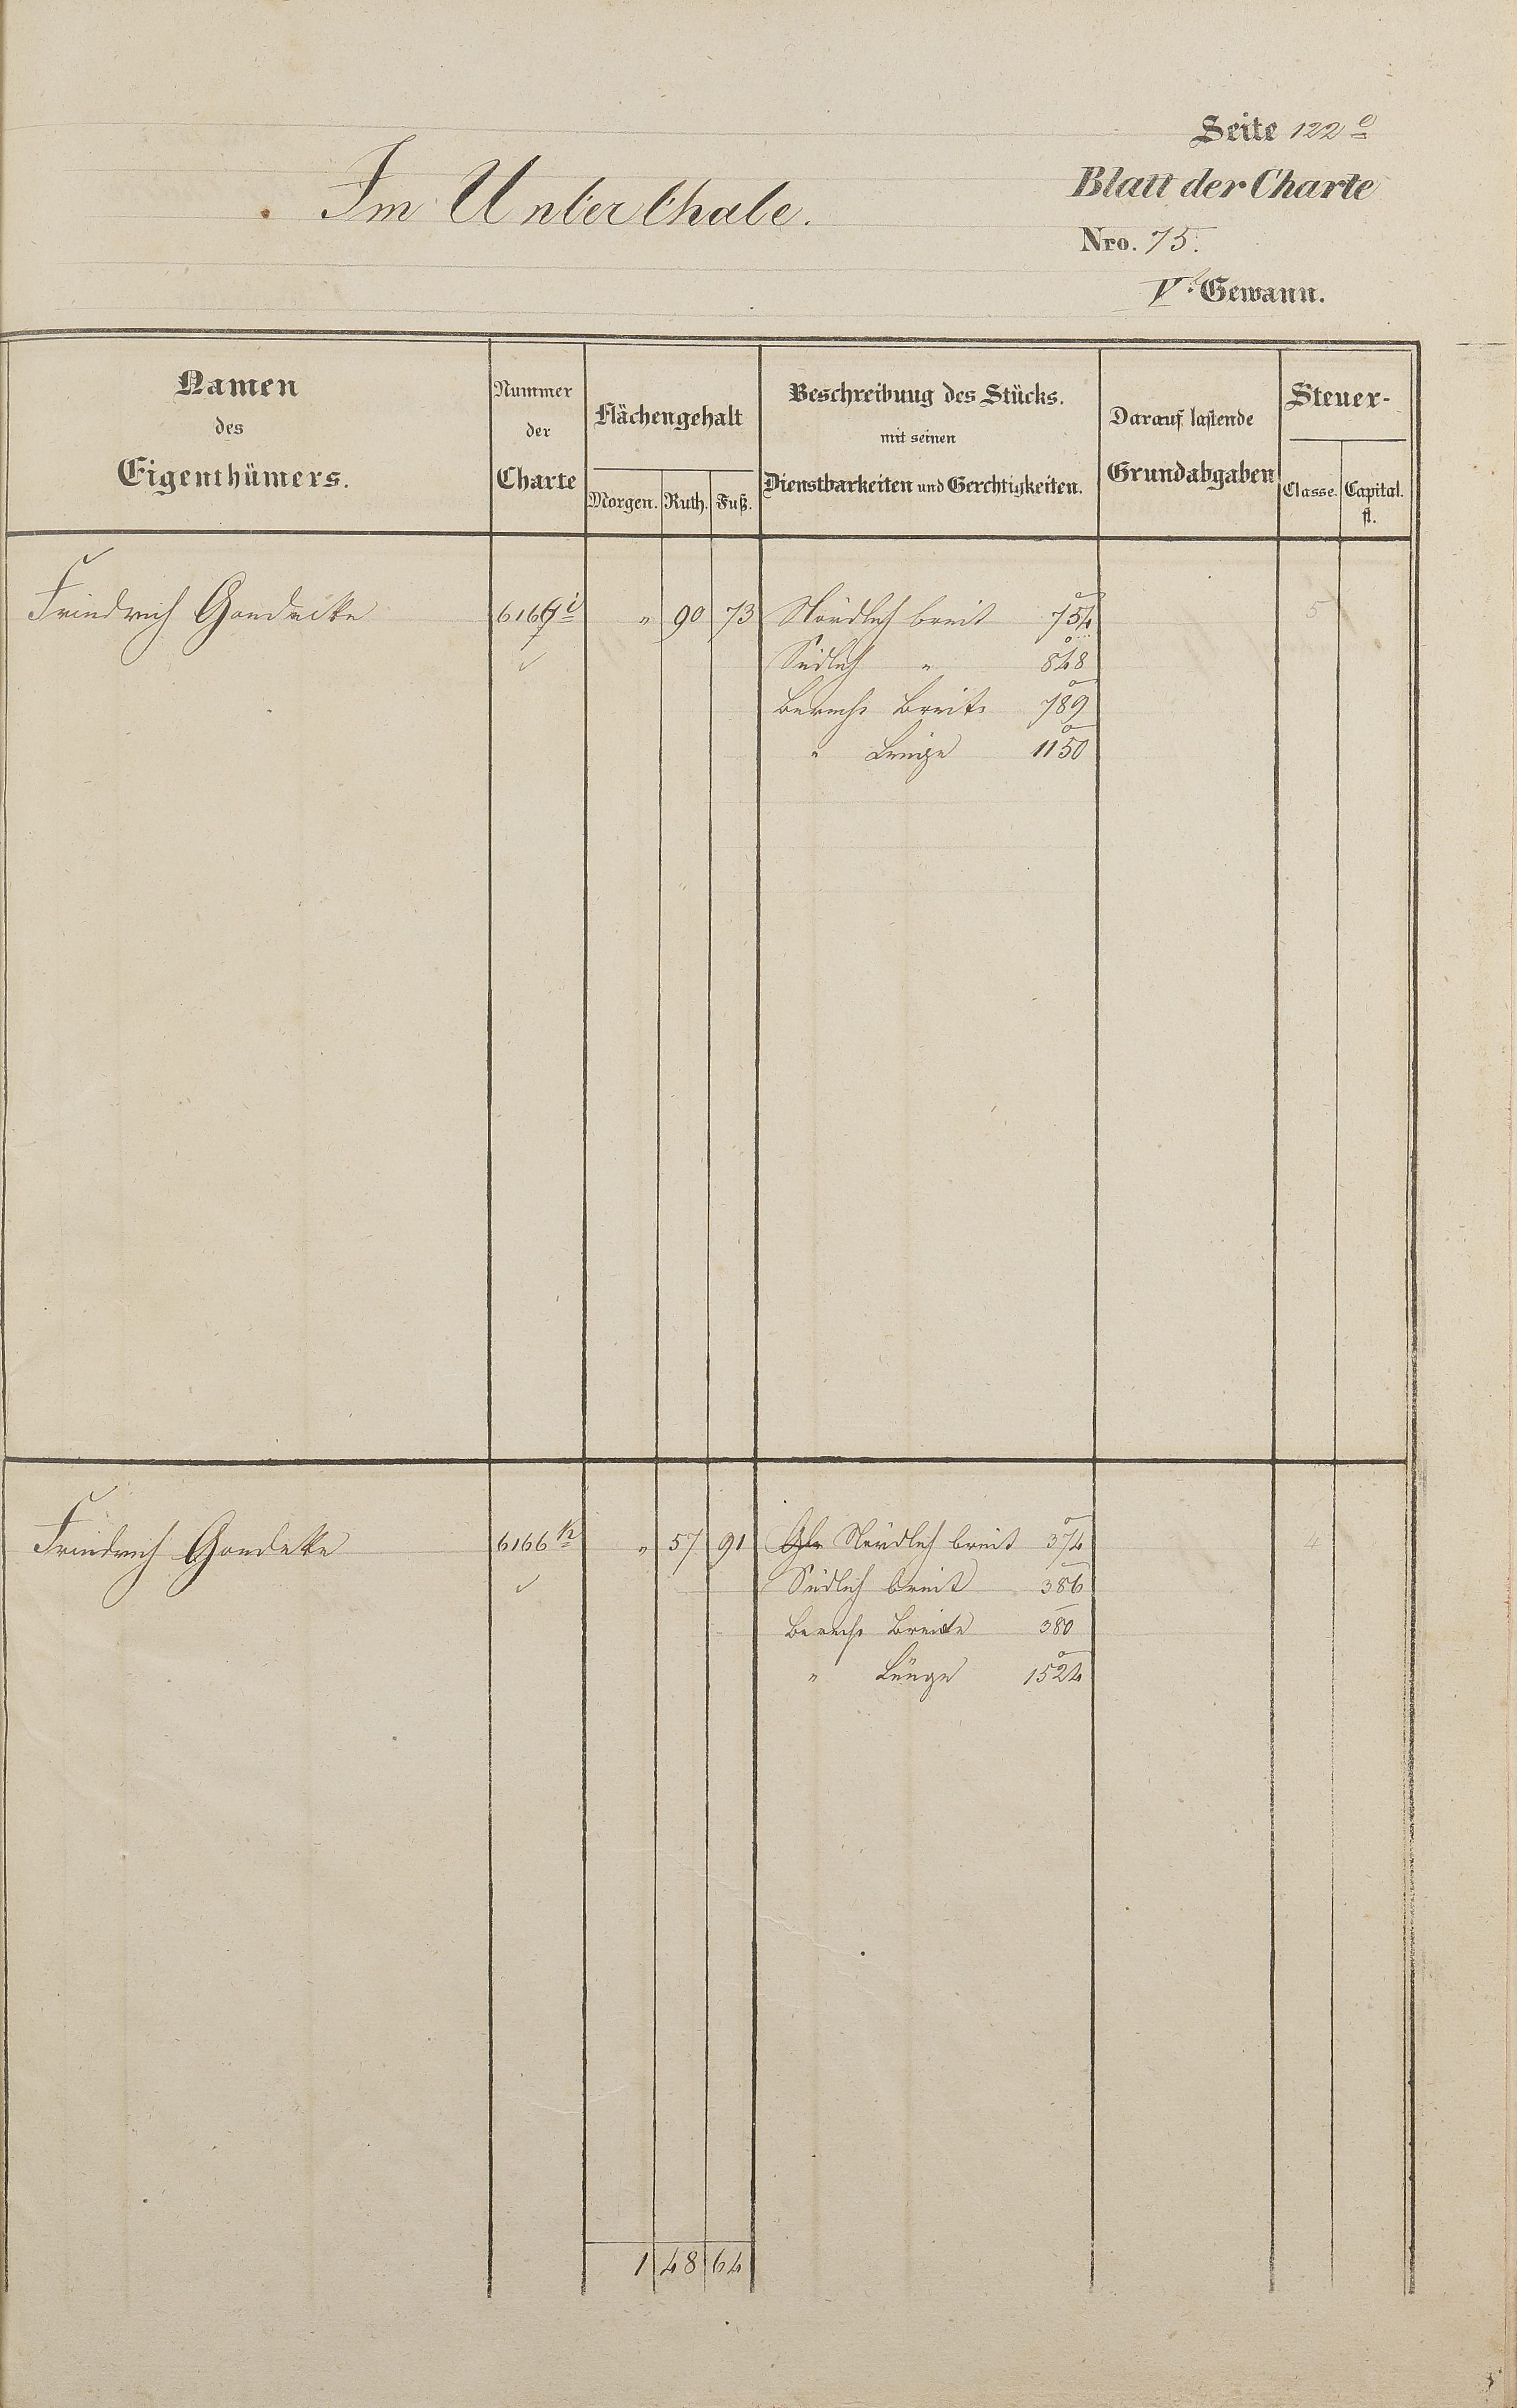 Seite 122 e
Im Unterthale.
Blatt der Charte
Nro. 75.
V. Gewann.
Namen des Eigenthümers.
Nummer der Charte
Flächengehalt
Morgen. Ruth. Fuß.
Beschreibung des Stücks.
mit seinen
Dienstbarkeiten und Gerechtigkeiten.
Darauf lastende
Grundabgaben
Steuer-
Classe. Capital.
fl.
Friedrich Goedecke 6166 i " 90 73 Nördlich breit 754 5
Südlich " 828
Berech. Breite 789
" Länge 1150
Friedrich Goedeke 6166 k " 57 91 Nördlich breit 374 4
Südlich breit 386
Berech. Breite 380
" Länge 1524
1 48 64